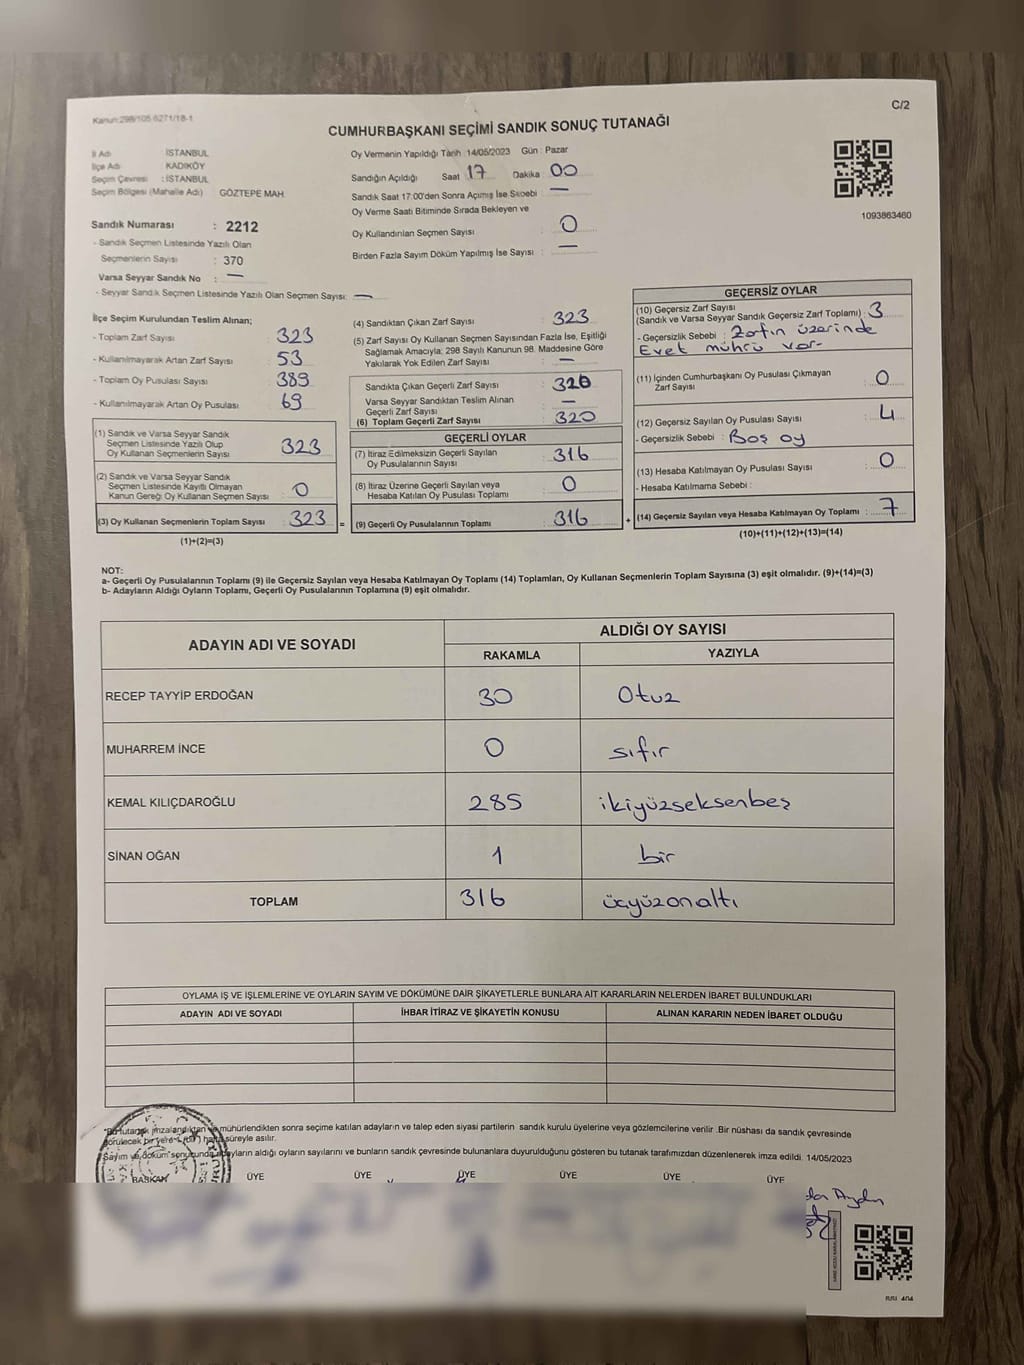 Kanun:298/105 6271/18-1
C/2
CUMHURBAŞKANI SEÇİMİ SANDIK SONUÇ TUTANAĞI
İl Adı : İSTANBUL
İlçe Adı : KADIKÖY
Seçim Çevresi : İSTANBUL
Seçim Bölgesi (Mahalle Adı) GÖZTEPE MAH.
Sandık Numarası : 2212
- Sandık Seçmen Listesinde Yazılı Olan
Seçmenlerin Sayısı : 370
Varsa Seyyar Sandık No : —
- Seyyar Sandık Seçmen Listesinde Yazılı Olan Seçmen Sayısı: —
Oy Vermenin Yapıldığı Tarih :14/05/2023 Gün : Pazar
Sandığın Açıldığı Saat 17 Dakika 00
Sandık Saat 17:00'den Sonra Açımış İse Sebebi : —
Oy Verme Saati Bitiminde Sırada Bekleyen ve
Oy Kullandırılan Seçmen Sayısı : 0
Birden Fazla Sayım Döküm Yapılmış İse Sayısı : —
1093863460
İlçe Seçim Kurulundan Teslim Alınan;
- Toplam Zarf Sayısı : 323
- Kullanılmayarak Artan Zarf Sayısı : 53
- Toplam Oy Pusulası Sayısı : 389
- Kullanılmayarak Artan Oy Pusulası : 69
(1) Sandık ve Varsa Seyyar Sandık
Seçmen Listesinde Yazılı Olup
Oy Kullanan Seçmenlerin Sayısı : 323
(2) Sandık ve Varsa Seyyar Sandık
Seçmen Listesinde Kayıtlı Olmayan
Kanun Gereği Oy Kullanan Seçmen Sayısı : 0
(3) Oy Kullanan Seçmenlerin Toplam Sayısı : 323
(1)+(2)=(3)
(4) Sandıktan Çıkan Zarf Sayısı : 323
(5) Zarf Sayısı Oy Kullanan Seçmen Sayısından Fazla İse, Eşitliği
Sağlamak Amacıyla; 298 Sayılı Kanunun 98. Maddesine Göre
Yakılarak Yok Edilen Zarf Sayısı : —
Sandıkta Çıkan Geçerli Zarf Sayısı : 320
Varsa Seyyar Sandıktan Teslim Alınan
Geçerli Zarf Sayısı : —
(6) Toplam Geçerli Zarf Sayısı : 320
GEÇERLİ OYLAR
(7) İtiraz Edilmeksizin Geçerli Sayılan
Oy Pusulalarının Sayısı : 316
(8) İtiraz Üzerine Geçerli Sayılan veya
Hesaba Katılan Oy Pusulası Toplamı : 0
= (9) Geçerli Oy Pusulalarının Toplamı : 316
GEÇERSİZ OYLAR
(10) Geçersiz Zarf Sayısı
(Sandık ve Varsa Seyyar Sandık Geçersiz Zarf Toplamı) : 3
- Geçersizlik Sebebi : Zarfın üzerinde
Evet mührü var.
(11) İçinden Cumhurbaşkanı Oy Pusulası Çıkmayan
Zarf Sayısı : 0
(12) Geçersiz Sayılan Oy Pusulası Sayısı : 4
- Geçersizlik Sebebi : Boş oy
(13) Hesaba Katılmayan Oy Pusulası Sayısı : 0
- Hesaba Katılmama Sebebi :
+ (14) Geçersiz Sayılan veya Hesaba Katılmayan Oy Toplamı : 7
(10)+(11)+(12)+(13)=(14)
NOT:
a- Geçerli Oy Pusulalarının Toplamı (9) ile Geçersiz Sayılan veya Hesaba Katılmayan Oy Toplamı (14) Toplamları, Oy Kullanan Seçmenlerin Toplam Sayısına (3) eşit olmalıdır. (9)+(14)=(3)
b- Adayların Aldığı Oyların Toplamı, Geçerli Oy Pusulalarının Toplamına (9) eşit olmalıdır.
ADAYIN ADI VE SOYADI
ALDIĞI OY SAYISI
RAKAMLA YAZIYLA
RECEP TAYYİP ERDOĞAN 30 Otuz
MUHARREM İNCE 0 sıfır
KEMAL KILIÇDAROĞLU 285 ikiyüzseksenbeş
SİNAN OĞAN 1 bir
TOPLAM 316 üçyüzonaltı
OYLAMA İŞ VE İŞLEMLERİNE VE OYLARIN SAYIM VE DÖKÜMÜNE DAİR ŞİKAYETLERLE BUNLARA AİT KARARLARIN NELERDEN İBARET BULUNDUKLARI
ADAYIN ADI VE SOYADI İHBAR İTİRAZ VE ŞİKAYETİN KONUSU ALINAN KARARIN NEDEN İBARET OLDUĞU
*Bu tutanak imzalandıktan ve mühürlendikten sonra seçime katılan adayların ve talep eden siyasi partilerin sandık kurulu üyelerine veya gözlemcilerine verilir .Bir nüshası da sandık çevresinde
görülecek bir yere süreyle asılır.
Sayım ve döküm sonucunda adayların aldığı oyların sayılarını ve bunların sandık çevresinde bulunanlara duyurulduğunu gösteren bu tutanak tarafımızdan düzenlenerek imza edildi. 14/05/2023
BAŞKAN ÜYE ÜYE ÜYE ÜYE ÜYE ÜYE
Aydın